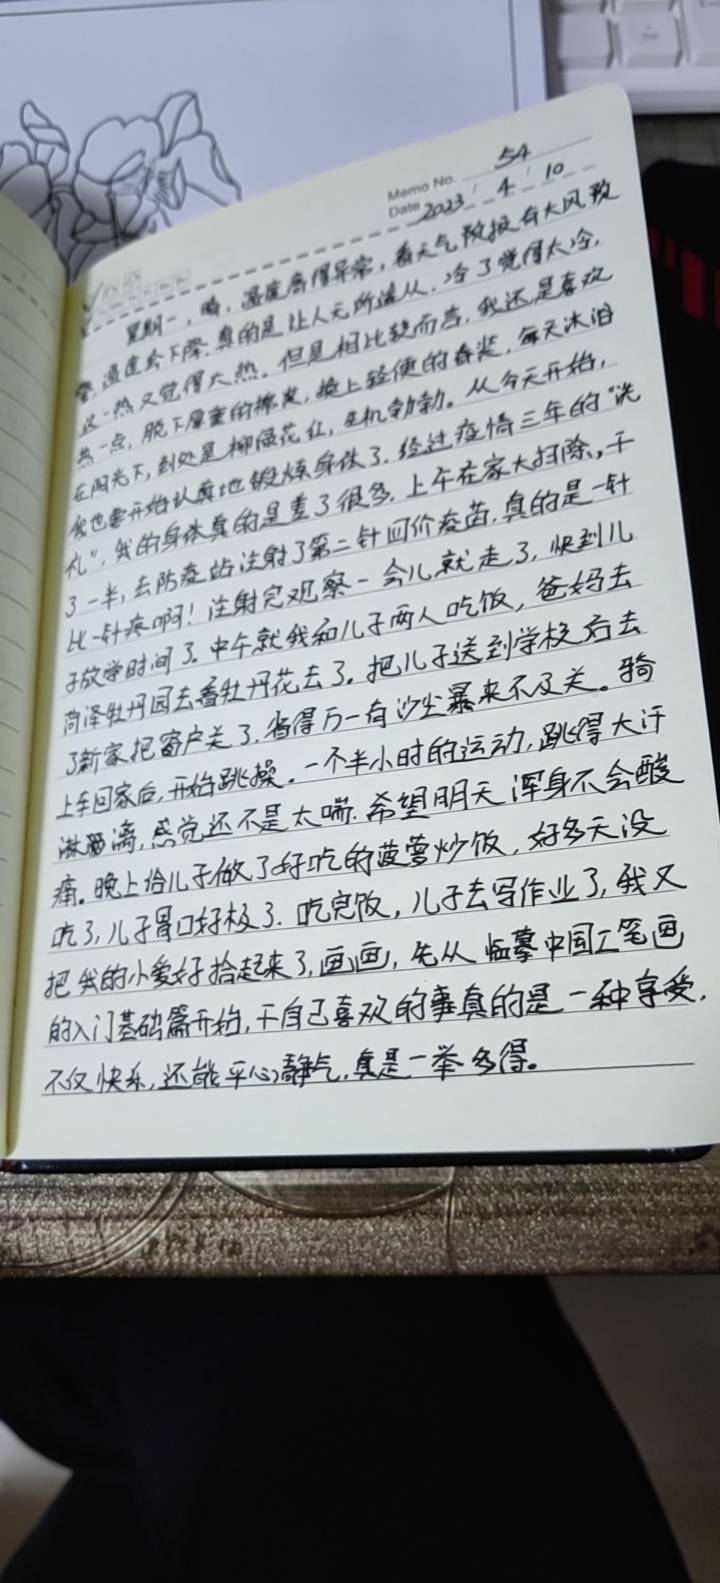 Memo No. 54
Date 2023 / 4 / 10
星期一，晴，温度高得异常，看天气预报有大风预
警，温度会下降，真的是让人无所适从，冷了觉得太冷，
这一热又觉得太热，但是相比较而言，我还是喜欢
热一点，脱下厚重的棉衣，换上轻便的春装，每天沐浴
在阳光下，到处是柳绿花红，生机勃勃。从今天开始，
我也要开始认真地锻炼身体了，经过疫情三年的“洗
礼”，我的身体真的是差了很多，上午在家大扫除，干
了一半，去防疫站注射了第二针四价疫苗，真的是一针
比一针疼啊！注射完观察一会儿就走了，快到儿
子放学时间了。中午就我和儿子两人吃饭，爸妈去
菏泽牡丹园去看牡丹花去了。把儿子送到学校后去
了新家把窗户关了，省得万一有沙尘暴来不及关。骑
上车回家后，开始跳操。一个半小时的运动，跳得大汗
淋漓，感觉还不是太喘。希望明天浑身不会酸
痛。晚上给儿子做了好吃的菠萝炒饭，好多天没
吃了，儿子胃口好极了。吃完饭，儿子去写作业了，我又
把我的小爱好拾起来了，画画，先从临摹中国工笔画
的入门基础篇开始，干自己喜欢的事真的是一种享受，
不仅快乐，还能平心静气，真是一举多得。